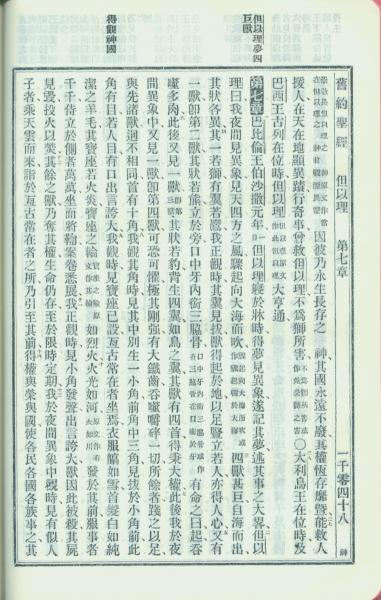 舊約聖經 但以理 第七章 一千零四十八 神
因彼乃永生長存之 神其國永遠不廢其權恆存靡暨能救人
援人在天在地顯異蹟行奇事曾救但以理不爲獅所害〇大利烏王在位時及
巴西王古列在位時但以理大亨通
第七章 巴比倫王伯沙撒元年但以理寢於牀時得夢見異象遂記其夢述其事之大畧但以
理曰我夜間見異象見天四方之風驟起向大海而吹四獸甚巨自海而出
其狀各異其一若獅有翼若鷹我正觀時其翼見拔獸得起於地以足豎立若人亦得人心又有
一獸卽第二獸其狀若熊立於旁口中牙內銜三脇骨有命之曰起吞
噬多肉此後又見一獸其狀若豹背生四翼如鳥之翼其獸有四首得秉大權此後我於夜
間異象中又見一獸卽第四獸可惡可懼極其剛強有大鐵齒吞嚼嚙碎一切所餘者踐之以足
與先諸獸迥不相同首有十角我觀其角時見其中別生一小角前角中三角見拔於小角前此
角有目若人目有口出言誇大我觀時見寶座已設亙古常在者坐焉衣服皜如雪首髮白如純
潔之羊毛其寶座若火炎寶座之輪如烈火火光如河發於其前服事者
千千侍立於側者萬萬坐而將鞫案卷悉展我正觀時見小角發聲出言誇大獸因此被殺其屍
見毀投火以焚其餘之獸乃奪其權生命仍存至於限時定期我於夜間異象中觀時見有似人
子者乘天雲而來詣於亙古常在者之所乃引至其前得權與榮與國使各民各國各族事之其
但以理夢四
巨獸
得觀神國